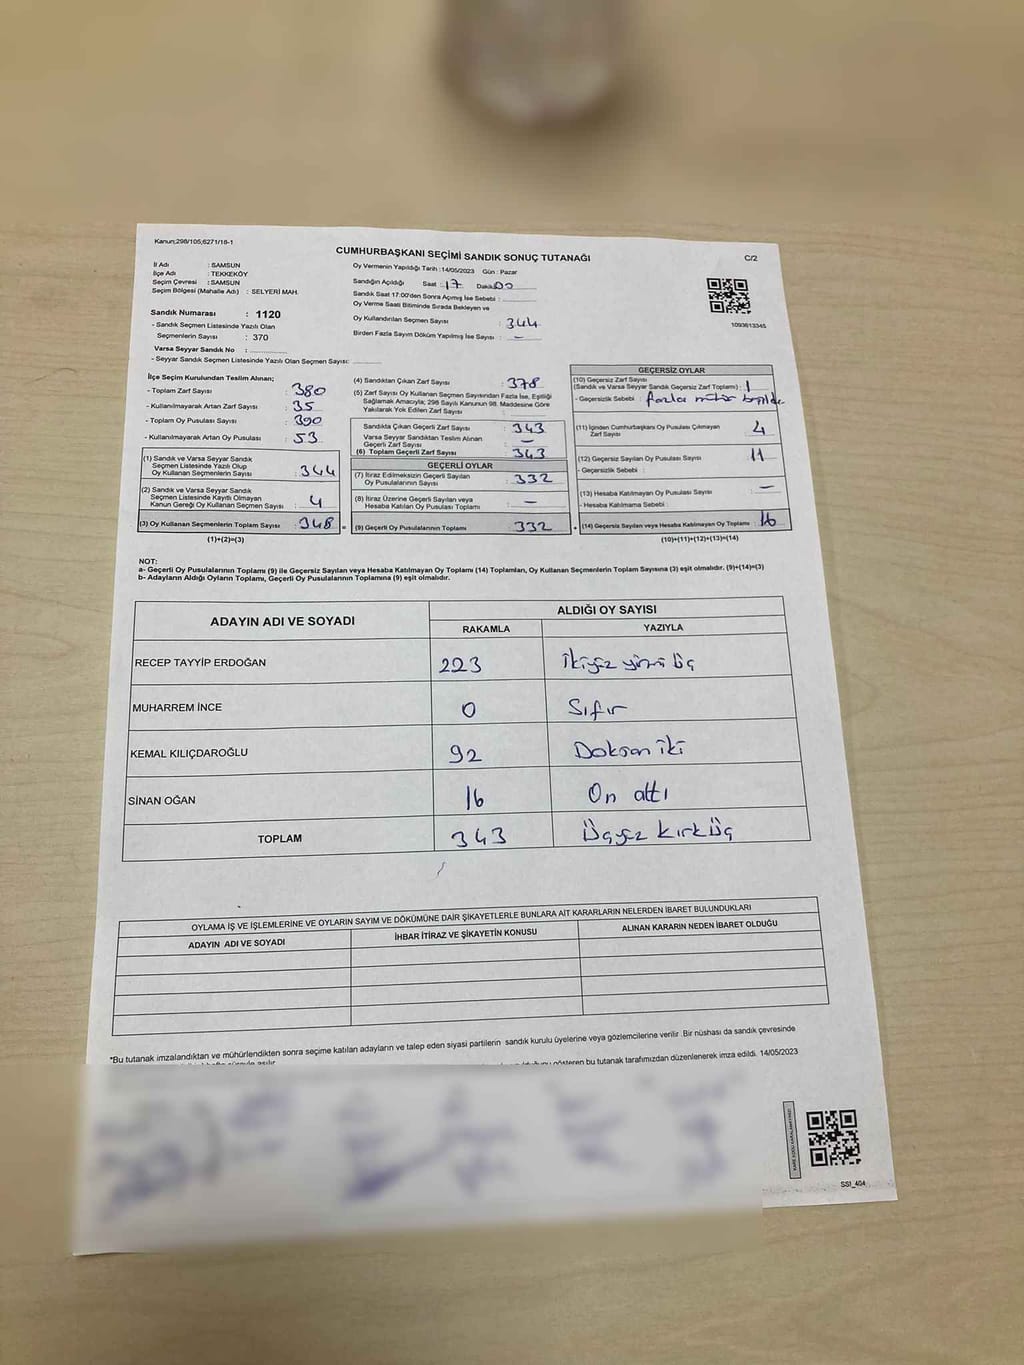 Kanun;298/105,6271/18-1
CUMHURBAŞKANI SEÇİMİ SANDIK SONUÇ TUTANAĞI
C/2
İl Adı : SAMSUN
İlçe Adı : TEKKEKÖY
Seçim Çevresi : SAMSUN
Seçim Bölgesi (Mahalle Adı) : SELYERİ MAH.
Sandık Numarası : 1120
- Sandık Seçmen Listesinde Yazılı Olan
Seçmenlerin Sayısı : 370
Varsa Seyyar Sandık No :
- Seyyar Sandık Seçmen Listesinde Yazılı Olan Seçmen Sayısı:
Oy Vermenin Yapıldığı Tarih :14/05/2023 Gün : Pazar
Sandığın Açıldığı Saat :17 Dakika:00
Sandık Saat 17:00'den Sonra Açmış İse Sebebi :
Oy Verme Saati Bitiminde Sırada Bekleyen ve
Oy Kullandırılan Seçmen Sayısı : 344
Birden Fazla Sayım Döküm Yapılmış İse Sayısı : -
1093613345
İlçe Seçim Kurulundan Teslim Alınan;
- Toplam Zarf Sayısı : 380
- Kullanılmayarak Artan Zarf Sayısı : 35
- Toplam Oy Pusulası Sayısı : 390
- Kullanılmayarak Artan Oy Pusulası : 53
(1) Sandık ve Varsa Seyyar Sandık
Seçmen Listesinde Yazılı Olup
Oy Kullanan Seçmenlerin Sayısı : 344
(2) Sandık ve Varsa Seyyar Sandık
Seçmen Listesinde Kayıtlı Olmayan
Kanun Gereği Oy Kullanan Seçmenlerin Sayısı : 4
(3) Oy Kullanan Seçmenlerin Toplam Sayısı : 348 =
(1)+(2)=(3)
(4) Sandıktan Çıkan Zarf Sayısı : 378
(5) Zarf Sayısı Oy Kullanan Seçmen Sayısından Fazla İse, Eşitliği
Sağlamak Amacıyla; 298 Sayılı Kanunun 98. Maddesine Göre
Yakılarak Yok Edilen Zarf Sayısı :
Sandıkta Çıkan Geçerli Zarf Sayısı : 343
Varsa Seyyar Sandıktan Teslim Alınan
Geçerli Zarf Sayısı : -
(6) Toplam Geçerli Zarf Sayısı : 343
GEÇERLİ OYLAR
(7) İtiraz Edilmeksizin Geçerli Sayılan
Oy Pusulalarının Sayısı : 332
(8) İtiraz Üzerine Geçerli Sayılan veya
Hesaba Katılan Oy Pusulası Toplamı : -
(9) Geçerli Oy Pusulalarının Toplamı : 332 +
GEÇERSİZ OYLAR
(10) Geçersiz Zarf Sayısı
(Sandık ve Varsa Seyyar Sandık Geçersiz Zarf Toplamı) : 1
- Geçersizlik Sebebi : fazla mühür
(11) İçinden Cumhurbaşkanı Oy Pusulası Çıkmayan
Zarf Sayısı : 4
(12) Geçersiz Sayılan Oy Pusulası Sayısı : 11
- Geçersizlik Sebebi :
(13) Hesaba Katılmayan Oy Pusulası Sayısı : -
- Hesaba Katılmama Sebebi :
(14) Geçersiz Sayılan veya Hesaba Katılmayan Oy Toplamı : 16
(10)+(11)+(12)+(13)=(14)
NOT:
a- Geçerli Oy Pusulalarının Toplamı (9) ile Geçersiz Sayılan veya Hesaba Katılmayan Oy Toplamı (14) Toplamları, Oy Kullanan Seçmenlerin Toplam Sayısına (3) eşit olmalıdır. (9)+(14)=(3)
b- Adayların Aldığı Oyların Toplamı, Geçerli Oy Pusulalarının Toplamına (9) eşit olmalıdır.
ADAYIN ADI VE SOYADI
ALDIĞI OY SAYISI
RAKAMLA YAZIYLA
RECEP TAYYİP ERDOĞAN 223 İkiyüz yirmi üç
MUHARREM İNCE 0 Sıfır
KEMAL KILIÇDAROĞLU 92 Doksan iki
SİNAN OĞAN 16 On altı
TOPLAM 343 Üçyüz kırk üç
OYLAMA İŞ VE İŞLEMLERİNE VE OYLARIN SAYIM VE DÖKÜMÜNE DAİR ŞİKAYETLERLE BUNLARA AİT KARARLARIN NELERDEN İBARET BULUNDUKLARI
ADAYIN ADI VE SOYADI İHBAR İTİRAZ VE ŞİKAYETİN KONUSU ALINAN KARARIN NEDEN İBARET OLDUĞU
*Bu tutanak imzalandıktan ve mühürlendikten sonra seçime katılan adayların ve talep eden siyasi partilerin sandık kurulu üyelerine veya gözlemcilerine verilir .Bir nüshası da sandık çevresinde
gösteren bu tutanak tarafımızdan düzenlenerek imza edildi. 14/05/2023
SSI_404